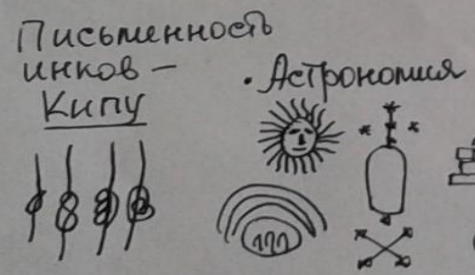 Письменность
инков —
Кипу
• Астрономия